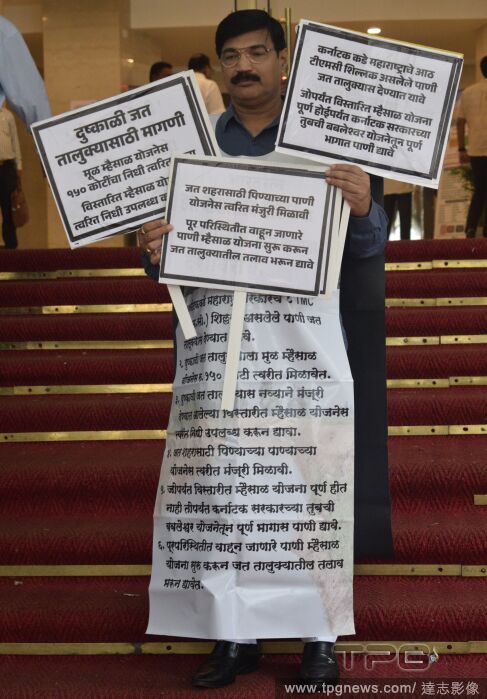 दुष्काळी जत
तालुक्यासाठी मागणी
मूळ म्हैसाळ योजनेस
१५० कोटींचा निधी त्व
विस्तारित म्हैसाळ यो
त्वरित निधी उपलब्ध क
कर्नाटक कडे महाराष्ट्राचे आठ
टीएमसी शिल्लक असलेले पाणी
जत तालुक्यास देण्यात यावे
जोपर्यंत विस्तारित म्हैसाळ योजना
पूर्ण होईपर्यंत कर्नाटक सरकारच्या
तुबची बबलेश्वर योजनेतून पूर्ण
भागात पाणी द्यावे
जत शहरासाठी पिण्याच्या पाणी
योजनेस त्वरित मंजुरी मिळावी
पूर परिस्थितीत वाहून जाणारे
पाणी म्हैसाळ योजना सुरू करून
जत तालुक्यातील तलाव भरून द्यावे
महाराष्ट्र सरकारचे ६ TMC
शिल्लक असलेले पाणी जत
तालुक्यास देण्यात यावे.
२. दुष्काळी जत तालुक्याला मुळ म्हैसाळ
योजनेस रु. १५० कोटी त्वरीत मिळावेत.
३. दुष्काळी जत तालुक्यास नव्याने मंजूरी
देण्यात आलेल्या विस्तारीत म्हैसाळ योजनेस
त्वरीत निधी उपलब्ध करून द्यावा.
४. जत शहरास पिण्याच्या पाण्याच्या
योजनेस त्वरीत मंजूरी मिळावी.
५. जोपर्यंत विस्तारीत म्हैसाळ योजना पूर्ण होत
नाही तोपर्यंत कर्नाटक सरकारच्या तुबची
बबलेश्वर योजनेतून पूर्ण भागास पाणी द्यावे.
६. पूरपरिस्थितीत वाहून जाणारे पाणी म्हैसाळ
योजना सुरु करून जत तालुक्यातील तलाव
भरून द्यावेत.
TPG
www.tpgnews.com/ 達志影像